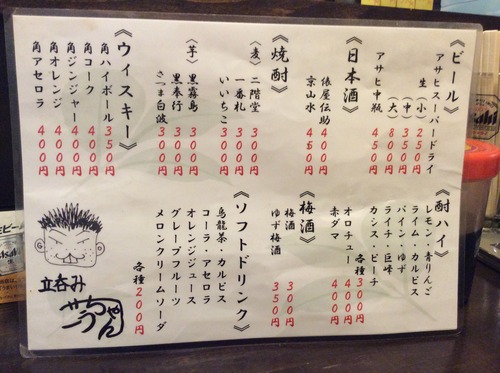 《ビール》
アサヒスーパードライ
生(小) 250円
(中) 350円
(大) 800円
アサヒ中瓶 450円
《日本酒》
俵屋伝助 400円
京山水 450円
《焼酎》
(麦)二階堂 300円
一番札 300円
いいちこ 300円
(芋)黒霧島 300円
黒奉行 300円
さつま白波 300円
《ウィスキー》
角ハイボール 350円
角コーク 400円
角ジンジャー 400円
角オレンジ 400円
角アセロラ 400円
《酎ハイ》
レモン・青りんご
ライム・カルピス
パイン・ゆず
ライチ・巨峰
カシス・ピーチ
各種300円
オロチュー 400円
赤ダマ 400円
《梅酒》
梅酒 300円
ゆず梅酒 350円
《ソフトドリンク》
烏龍茶・カルピス
コーラ・アセロラ
オレンジジュース
グレープフルーツ
メロンクリームソーダ
各種200円
立呑み